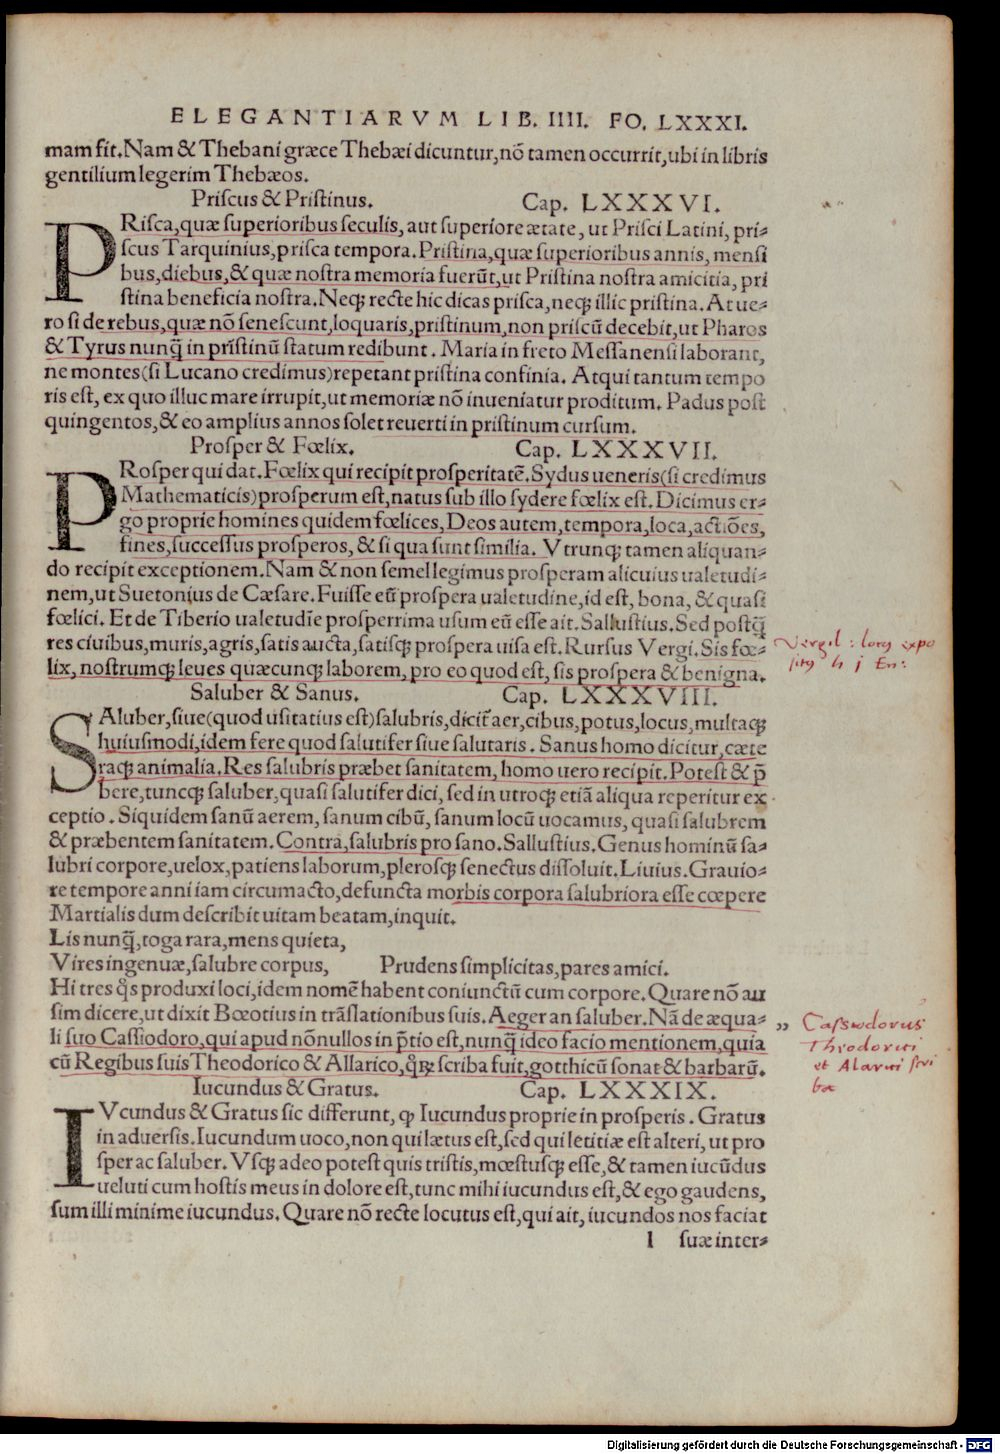 ELEGANTIARVM LIB. IIII. FO. LXXXI.
mam fit. Nam & Thebani græce Thebæi dicuntur, nō tamen occurrit, ubi in libris
gentilium legerim Thebæos.
Priscus & Pristinus. Cap. LXXXVI.
PRisca, quæ superioribus seculis, aut superiore ætate, ut Prisci Latini, pri-
scus Tarquinius, prisca tempora. Pristina, quæ superioribus annis, mensi
bus, diebus, & quæ nostra memoria fuerūt, ut Pristina nostra amicitia, pri
stina beneficia nostra. Neqꝫ recte hic dicas prisca, neqꝫ illic pristina. At ue-
ro si de rebus, quæ nō senescunt, loquaris, pristinum, non priscū decebit, ut Pharos
& Tyrus nunq̄ in pristinū statum redibunt. Maria in freto Messanensi laborant,
ne montes (si Lucano credimus) repetant pristina confinia. Atqui tantum tempo
ris est, ex quo illuc mare irrupit, ut memoriæ nō inueniatur proditum. Padus post
quingentos, & eo amplius annos solet reuerti in pristinum cursum.
Prosper & Fœlix. Cap. LXXXVII.
PRosper qui dat. Fœlix qui recipit prosperitatē. Sydus ueneris (si credimus
Mathematicis) prosperum est, natus sub illo sydere fœlix est. Dicimus er-
go proprie homines quidem fœlices, Deos autem, tempora, loca, actiōes,
fines, successus prosperos, & si qua sunt similia. Vtrunqꝫ tamen aliquan-
do recipit exceptionem. Nam & non semel legimus prosperam alicuius ualetudi-
nem, ut Suetonius de Cæsare. Fuisse eū prospera ualetudine, id est, bona, & quasi
fœlici. Et de Tiberio ualetudīe prosperrima usum eū esse ait. Sallustius. Sed postq̄
res ciuibus, muris, agris, satis aucta, satisqꝫ prospera uisa est. Rursus Vergi. Sis fœ-
lix, nostrumqꝫ leues quæcunqꝫ laborem, pro eo quod est, sis prospera & benigna.
Vergil: locꝰ expo
sitꝰ
Saluber & Sanus. Cap. LXXXVIII.
SAluber, siue (quod usitatius est) salubris, dicit̄ aer, cibus, potus, locus, multaqꝫ
huiusmodi, idem fere quod salutifer siue salutaris. Sanus homo dicitur, cæte
raqꝫ animalia. Res salubris præbet sanitatem, homo uero recipit. Potest & p̄
bere, tuncqꝫ saluber, quasi salutifer dici, sed in utroqꝫ etiā aliqua reperitur ex
ceptio. Siquidem sanū aerem, sanum cibū, sanum locū uocamus, quasi salubrem
& præbentem sanitatem. Contra, salubris pro sano. Sallustius. Genus hominū sa-
lubri corpore, uelox, patiens laborum, plerosqꝫ senectus dissoluit. Liuius. Grauio-
re tempore anni iam circumacto, defuncta morbis corpora salubriora esse cœpere
Martialis dum describit uitam beatam, inquit.
Lis nunq̄, toga rara, mens quieta,
Vires ingenuæ, salubre corpus, Prudens simplicitas, pares amici.
Hi tres q̊s produxi loci, idem nomē habent coniunctū cum corpore. Quare nō au
sim dicere, ut dixit Bœotius in trāslationibus suis. Aeger an saluber. Nā de æqua-
li suo Cassiodoro, qui apud nōnullos in p̄tio est, nunq̄ ideo facio mentionem, quia
cū Regibus suis Theodorico & Allarico, q̊ꝝ scriba fuit, gotthicū sonat & barbarū.
„ Cassiodorus
Theodorici
et Alarici scri
ba
Iucundus & Gratus. Cap. LXXXIX.
IVcundus & Gratus sic differunt, ꝙ Iucundus proprie in prosperis. Gratus
in aduersis. Iucundum uoco, non qui lætus est, sed qui letitiæ est alteri, ut pro
sper ac saluber. Vsqꝫ adeo potest quis tristis, mœstusqꝫ esse, & tamen iucūdus
ueluti cum hostis meus in dolore est, tunc mihi iucundus est, & ego gaudens,
sum illi minime iucundus. Quare nō recte locutus est, qui ait, iucundos nos faciat
l suæ inter-
Digitalisierung gefördert durch die Deutsche Forschungsgemeinschaft - DFG